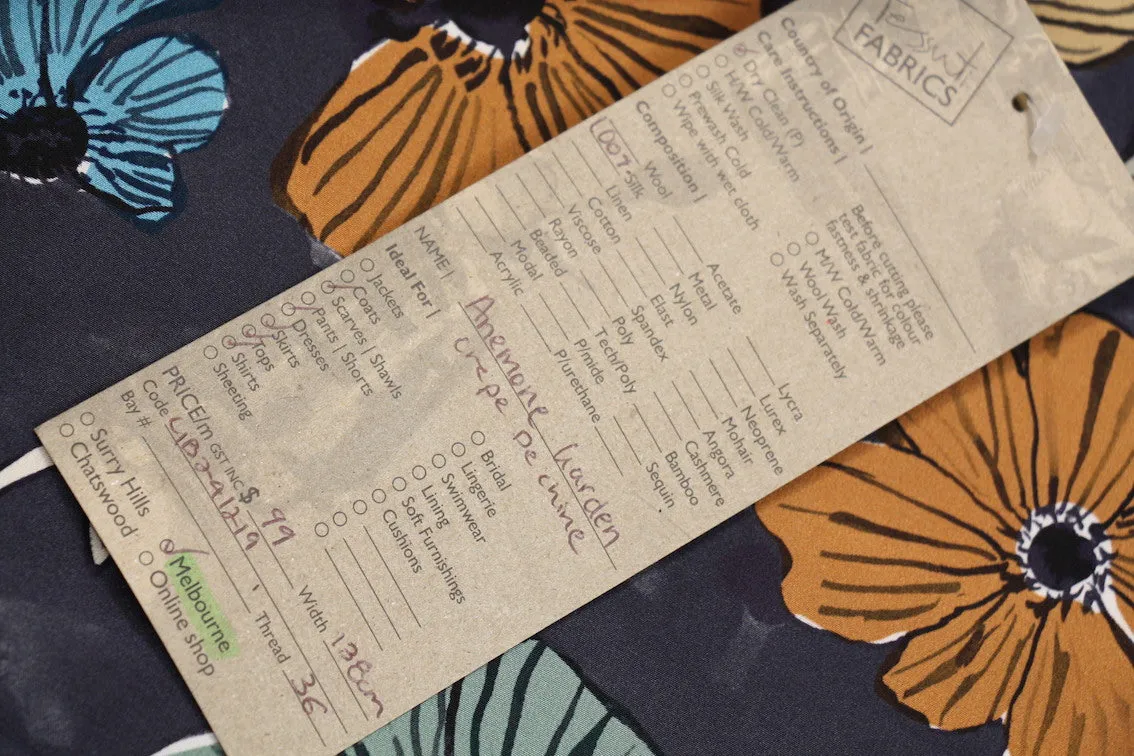 Tessuti
FABRICS
Country of Origin |
Care Instructions |
Dry Clean (P)
H/W Cold/Warm
Silk Wash
Prewash Cold
Wipe with wet cloth
Before cutting please
test fabric for colour
fastness & shrinkage
M/W Cold/Warm
Wool Wash
Wash Separately
Composition |
Wool
100% Silk
Linen
Cotton
Viscose
Rayon
Beaded
Modal
Acrylic
Acetate
Metal
Nylon
Elast
Spandex
Poly
Tech/Poly
P/mide
P/urethane
Lycra
Lurex
Neoprene
Mohair
Angora
Cashmere
Bamboo
Sequin
NAME | Anemone harden
crepe De chine
Ideal For |
Jackets
Coats
Scarves | Shawls
Pants | Shorts
Dresses
Skirts
Tops
Shirts
Sheeting
Bridal
Lingerie
Swimwear
Lining
Soft Furnishings
Cushions
PRICE/m GST INC $ 99
Width 138cm
Code
Thread 36
Bay #
Surry Hills
Chatswood
Melbourne
Online shop